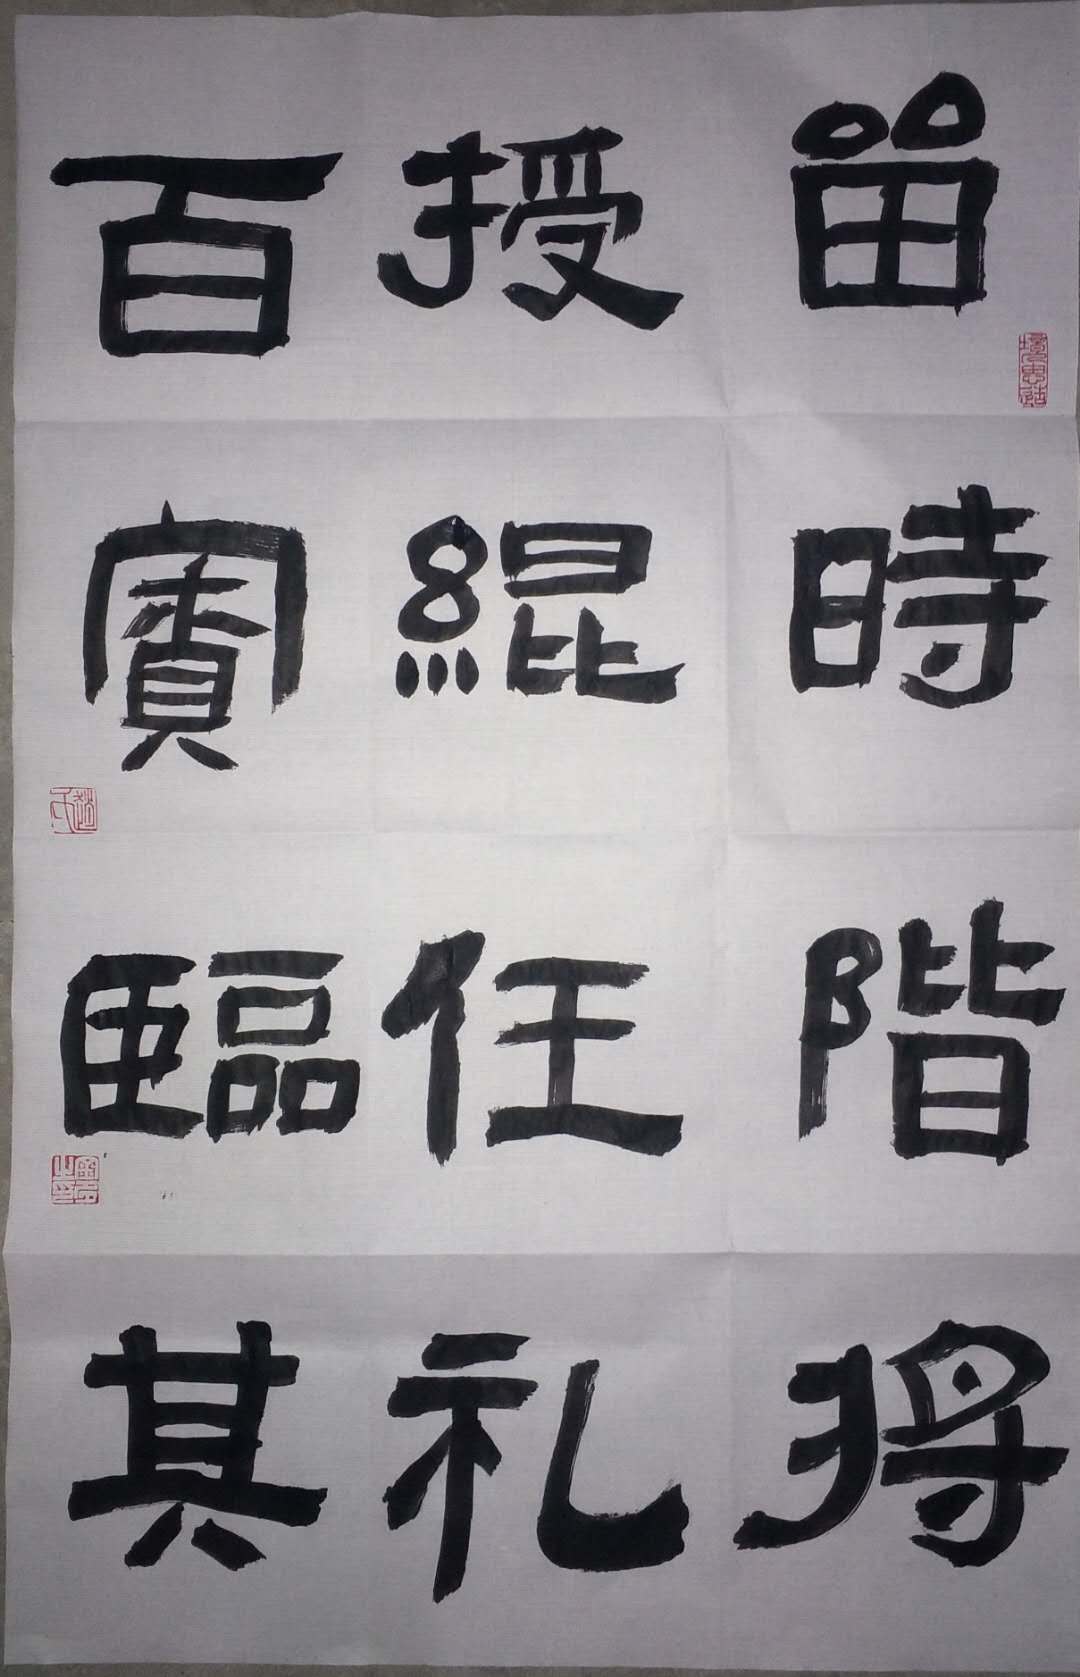 留時階将
授緄任礼
百賓臨其